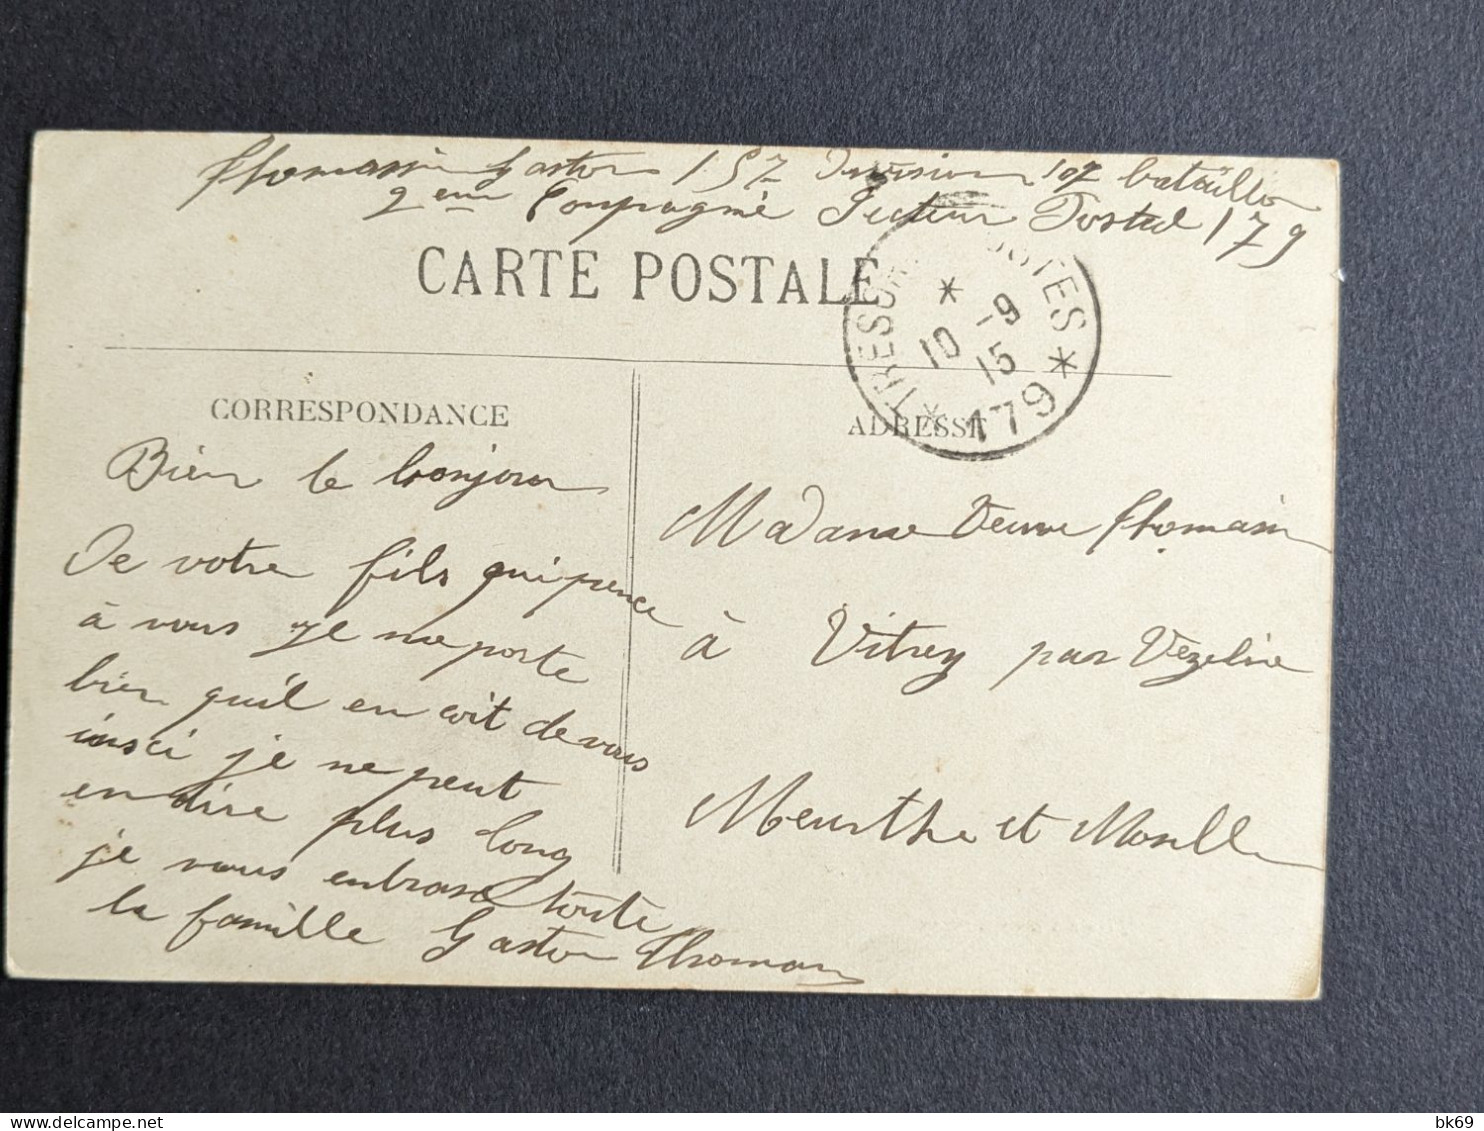 Thomassin Gaston 157 Division 107 bataillon
2eme Compagnie Secteur Postal 179
CARTE POSTALE
TRESOR POSTES
* 10 -9 15 *
* 179 *
CORRESPONDANCE
ADRESSE
Bien le bonjour
De votre fils qui pence
à vous Je me porte
bien quil en soit de vous
insci je ne peut
en dire plus long
je vous enbrase toute
la famille Gaston Thomassin
Madame Veuve Thomassin
à Vitrey par Vezelise
Meurthe et Moselle
bk69
www.delcampe.net